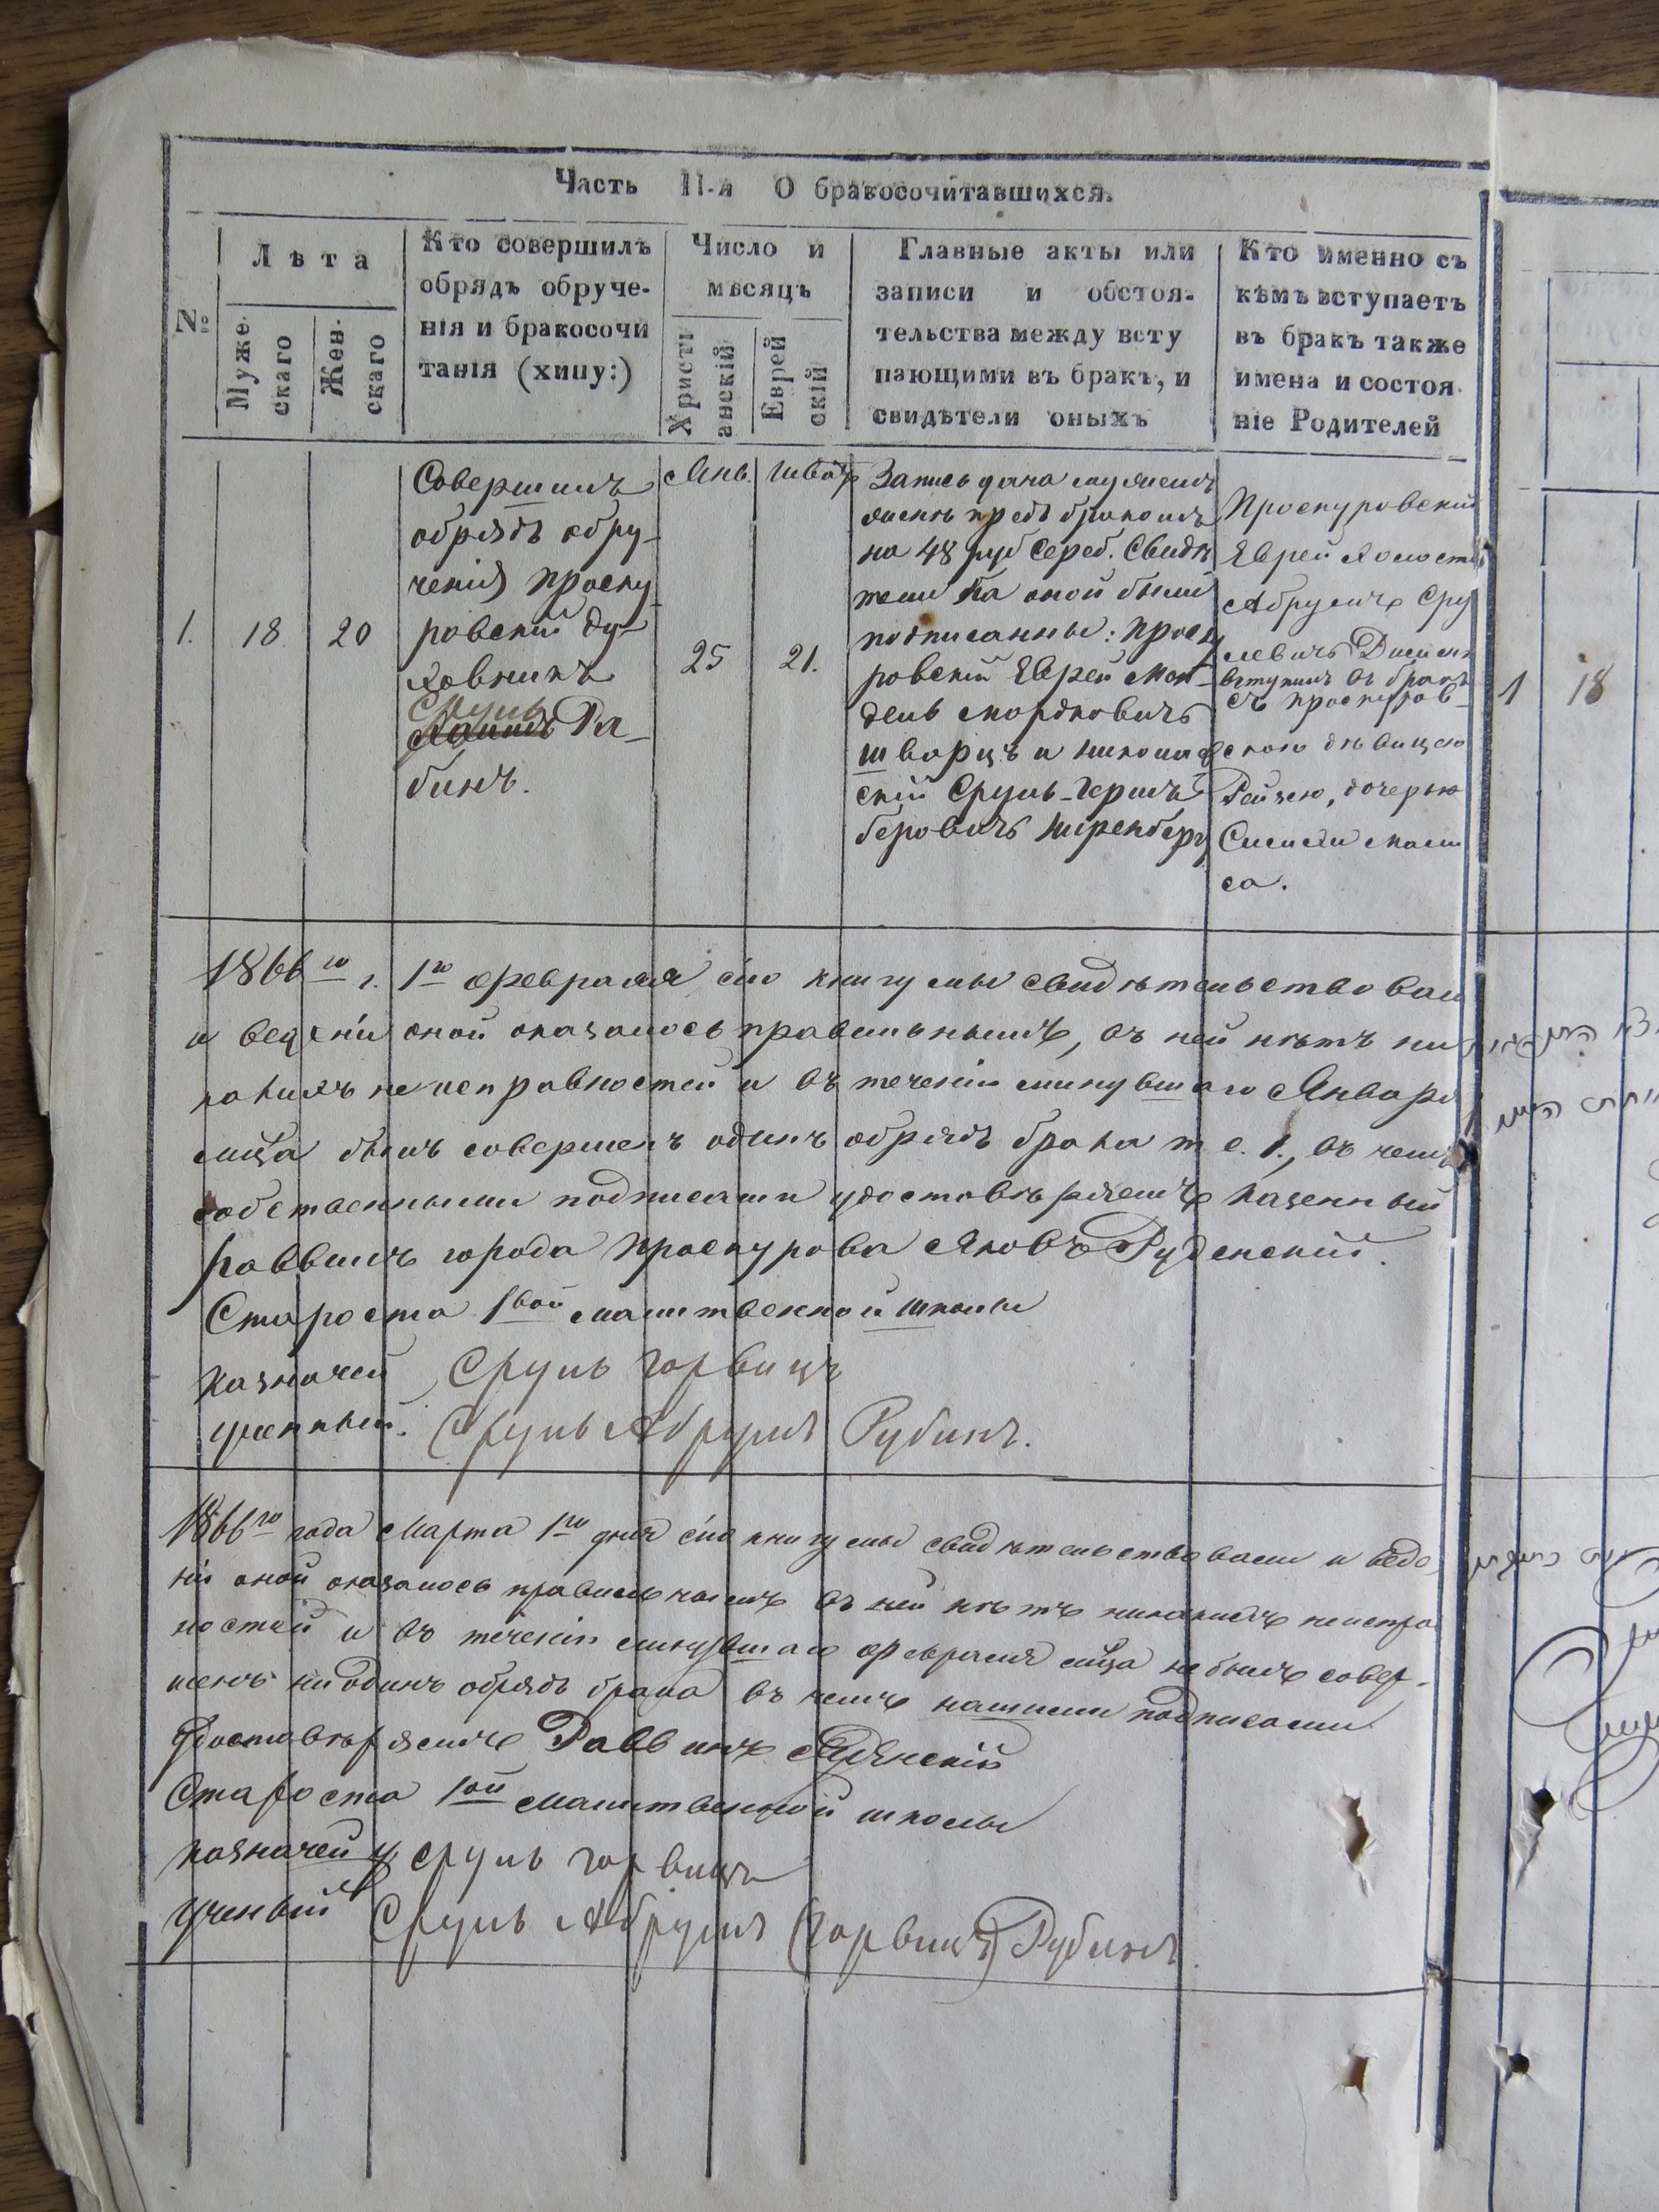 Часть II-я О бракосочитавшихся.
№
Лѣта
Мужескаго
Женскаго
Кто совершилъ
обрядъ обруче-
нія и бракосочи
танія (хипу:)
Число и
мѣсяцъ
Христіанскій
Еврейскій
Главные акты или
записи и обстоя-
тельства между всту
пающими въ бракъ, и
свидѣтели оныхъ
Кто именно съ
кѣмъ вступаетъ
въ бракъ также
имена и состоя
ніе Родителей
1.
18.
20
Совершилъ
обрядъ обру-
ченія проску
ровскій ду-
ховникъ
Сруль
Ра-
бинъ.
Янв.
25
Шват
21.
Запись дана мужемъ
женѣ предъ бракомъ
на 48 руб сереб. Свидѣ
тели на оной были
подписанны: проску
ровскій Еврей Мор-
дко Мордковичъ
Шварцъ и никола
скій Сруль-Герш
беровичъ Ниренбергъ
Проскуровскій
Еврей Холостый
Абрумъ Сру
левичъ
вступилъ въ бракъ
съ проскуров-
скою дѣвицею
Рейзею, дочерью
са.
1
18
1866го г. 1го февраля сію книгу мы свидѣтельствовали
и веденіи оной оказалось правильнымъ, въ ней нѣтъ ни
какихъ неисправностей и въ теченіи минувшаго Января
м-ца былъ совершенъ одинъ обрядъ брака т. е. 1., въ чемъ
собственными подписами удостовѣряемъ Казенный
раввинъ города Проскурова Яковъ Руденскій.
Староста 1вой малитвенной школы
Казначей Сруль Горвицъ
ученный. Сруль Абрумъ Рубинъ.
1866го года Марта 1го дня сію книгу мы свидѣтельствовали и веде
ніи оной оказалось правильнымъ въ ней нѣтъ никакихъ неиспра
ностей и въ теченіи минувшаго февраля м-ца небылъ совер-
шенъ ниодинъ обрядъ брака въ чемъ нашими подписами
удостовѣряемъ Раввинъ Руденскій
Староста 1ой малитвенной школы
казначей Сруль Горвицъ
ученый Сруль Абрумъ (Горвицъ) Рубинъ.